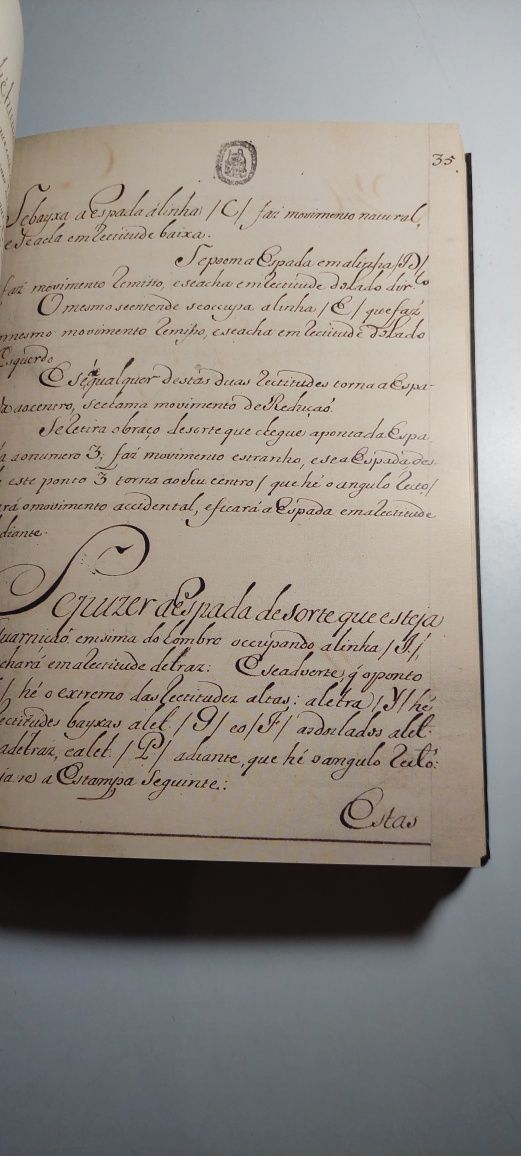 35.
Se bayxa a espada á linha /C/ faz movimento natural,
e se acha em Rectitude baixa.
Se poem a Espada em a linha /D/
faz movimento Remisso, e se acha em Rectitude do Lado dir.to
O mesmo se entende se occupa a linha /E/ que faz
mesmo movimento Remisso, e se acha em Rectitude do Lado
Esquerdo
E se de qualquer destas duas Rectitudes torna a Espa-
da ao centro, se chama movimento de Reducçaõ.
Se Retira o braço de sorte que chegue a ponta da Espa-
ao numero 3; faz movimento estranho, e se a Espada des-
este ponto 3 torna ao Seu centro / que hé o angulo Recto /
rá o movimento accidental, e ficará a Espada em a Rectitude
diante.
Se puzer a Espada de sorte que esteja
Guarniçaõ em sima do ombro occupando a linha
chará em a Rectitude de traz: E se adverte, q̃ o ponto
hé o extremo das Rectitudez altas: a letra /Y/ hé
Rectitudes bayxas a let. /G/ e o /F/ aos lados a let.
adetraz, e a let. /P/ adiante, que hé o angulo Recto:
ja se a Estampa Seguinte:
Estas